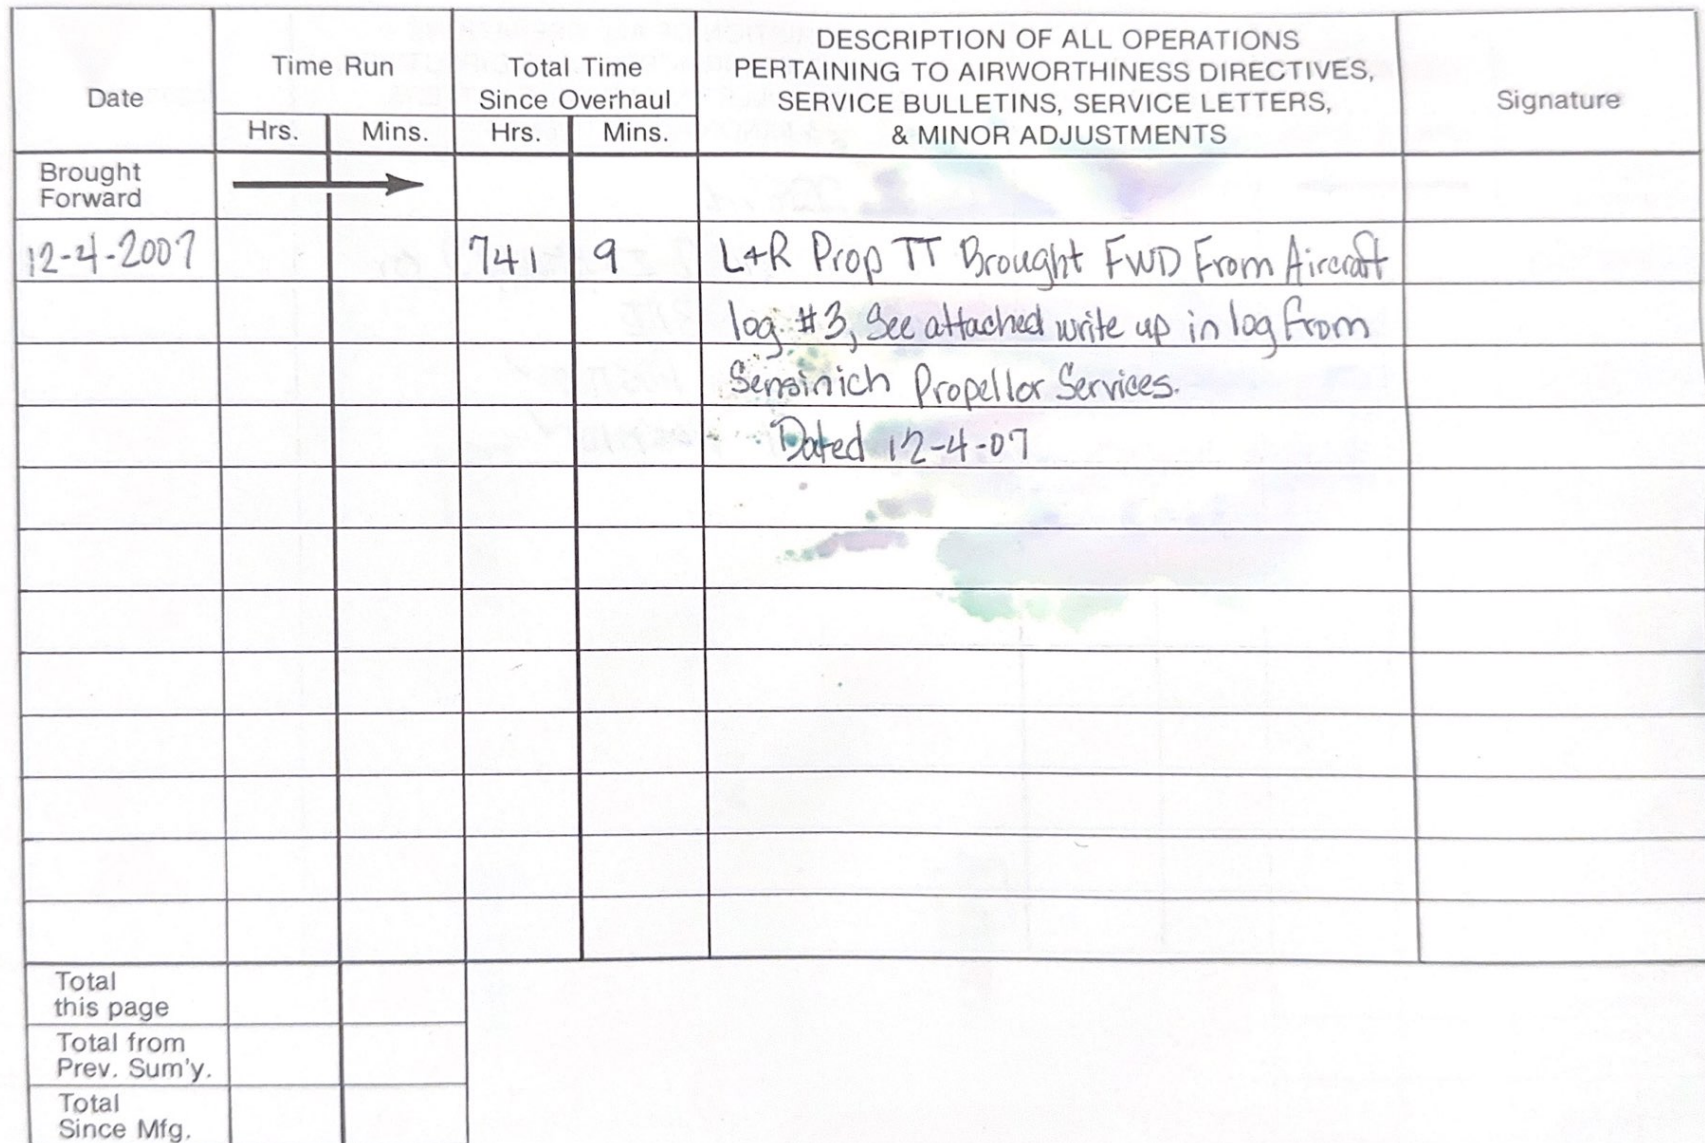 Date
Time Run
Total Time
Since Overhaul
DESCRIPTION OF ALL OPERATIONS
PERTAINING TO AIRWORTHINESS DIRECTIVES,
SERVICE BULLETINS, SERVICE LETTERS,
& MINOR ADJUSTMENTS
Signature
Hrs. Mins. Hrs. Mins.
Brought
Forward
12-4-2007 741 9 L+R Prop TT Brought FWD From Aircraft
log #3, See attached write up in log from
Sensinich Propellor Services.
Dated 12-4-07
Total
this page
Total from
Prev. Sum'y.
Total
Since Mfg.